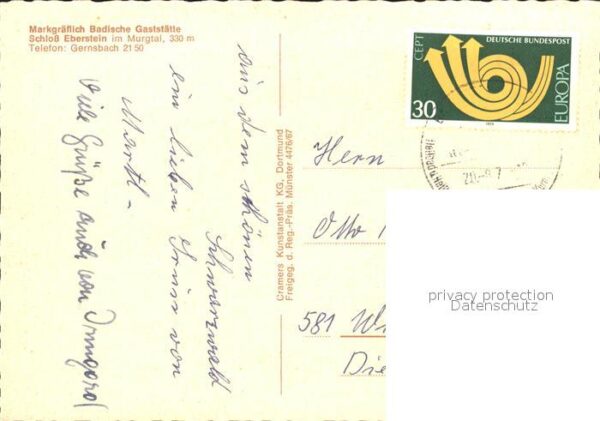 Markgräflich Badische Gaststätte
Schloß Eberstein im Murgtal, 330 m
Telefon: Gernsbach 21 50
aus dem schönen
Schwarzwald
ein lieben Gruss von
Martl -
Viele Grüße auch von Irmgard
Cramers Kunstanstalt KG, Dortmund
Freigeg. d. Reg.-Präs. Münster 4476/67
CEPT
DEUTSCHE BUNDESPOST
30
EUROPA
1973
Herrn
Otto
581 Wi
Die
privacy protection
Datenschutz